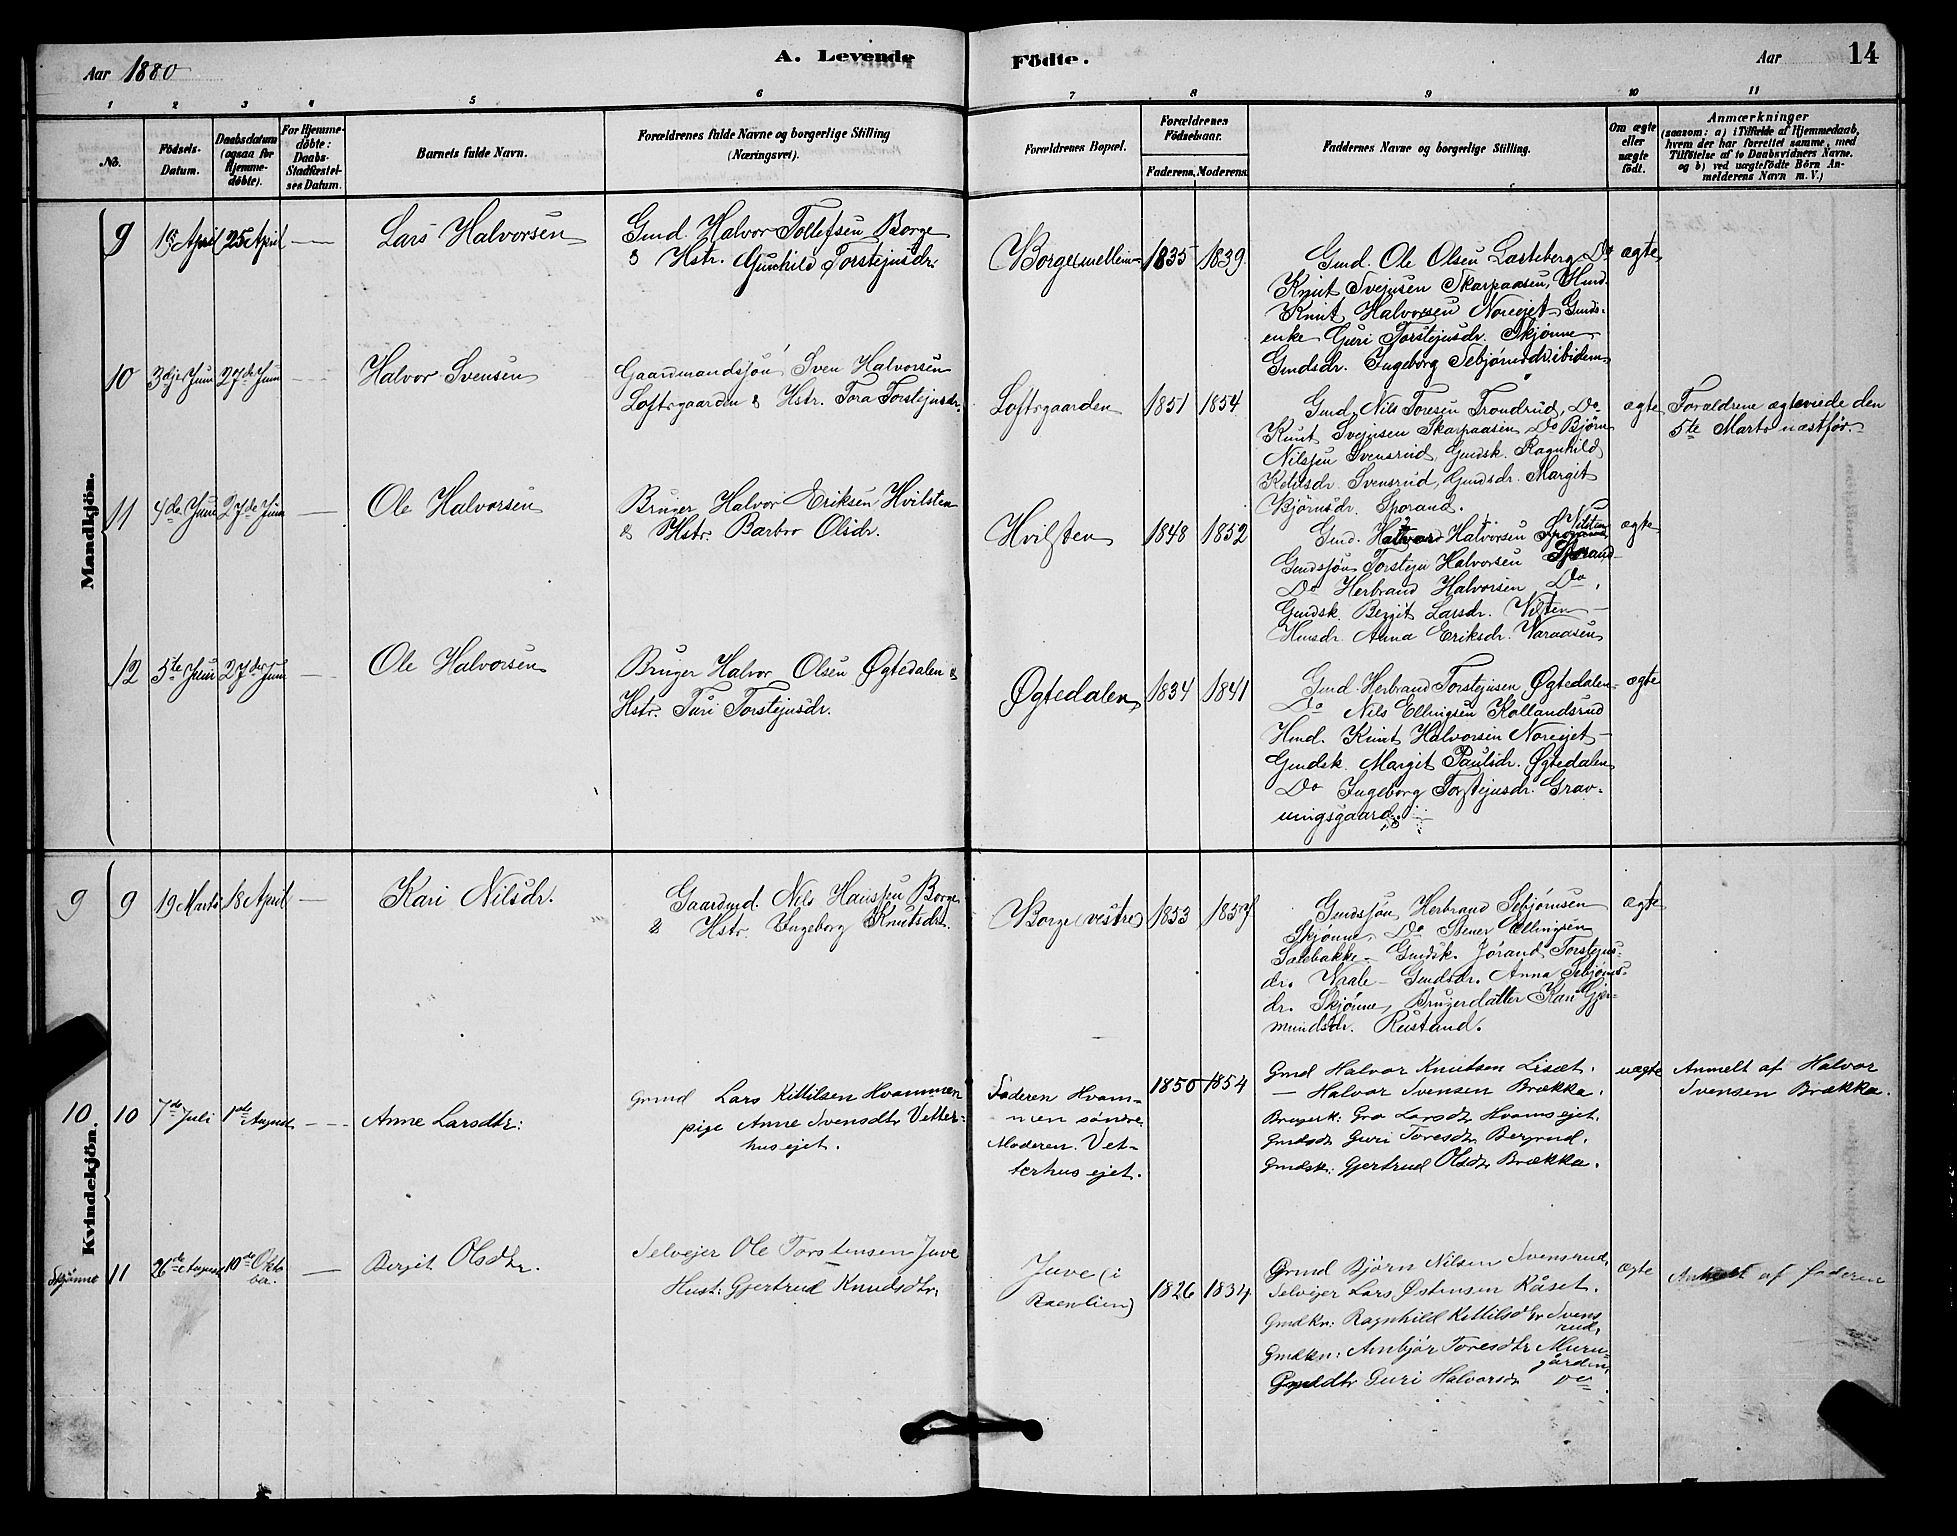 Aar 1880
A. Levende
Födte.
Aar
14
1 2 3 4 5 6 7 8 9 10 11
No.
Födsels-
Datum.
Daabsdatum
(ogsaa for
Hjemme-
döbte).
For Hjemme-
döbte:
Daabs-
Stadfæstel-
ses Datum.
Barnets fulde Navn.
Forældrenes fulde Navne og borgerlige Stilling
(Næringsvei).
Forældrenes Bopæl.
Forældrenes
Födselsaar.
Faderens. Moderens.
Faddernes Navne og borgerlige Stilling.
Om ægte
eller
uægte
födt.
Anmærkninger
(saasom: a) i Tilfælde af Hjemmedaab,
hvem der har forrettet samme, med
Tilföielse af to Daabsvidners Navne.
og b) ved uægtefödte Börn An-
melderens Navn m. V.)
Mandkjön.
9 April 25 April — Lars Halvorsen
Gmd. Halvor Tollefsen Borge
& Hstr. Gunhild Torstejnsdr.
Borge (mellem 1835 1839
Gmd. Ole Olsen Do
Knut Svejnsen Skarpaasen, Hmd.
Knut Halvorsen Norejet Gmds-
enke Guri Torstejnsdr. Skjønne
Gmdsdr. Ingeborg Sebjørnsdr. ibidem
ægte
10 3dje Juni 27de Juni — Halvor Svensen
Gaardmandssøn Sven Halvorsen
Loftsgaarden & Hstr. Tora Torstejnsdr.
Loftsgaarden 1851 1854
Gmd. Nils Toresen Trondrud, Do
Knut Svejnsen Skarpaasen Do Bjørn
Nilssen Svensrud, Gmdsk. Ragnhild
Ketilsdr. Svensrud, Gmdsdr. Margit
Bjørnsdr. Sporand.
ægte
Forældrene ægteviede den
5te Marts næstfør.
11 4de Juni 27de Juni — Ole Halvorsen
Bruger Halvor Eriksen Hvilsten
& Hstr. Barbro Olsdr.
Hvilsten 1848 1852
Gmd. Halvor Halvorsen Vilsten
Gmdssøn Torstejn Halvorsen Sporand
Do Herbrand Halvorsen Do,
Gmdsk. Bergit Larsdr. Vilsten
Hmsdr. Anna Eriksdr. Varaasen
ægte
12 5te Juni 27de Juni — Ole Halvorsen
Bruger Halvor Olsen Øgtedalen &
Hstr. Turi Torstejnsdr.
Øgtedalen 1834 1841
Gmd. Herbrand Torstejnsen Øgtedalen
Do Nils Ellingsen Kollandsrud
Hmd. Knut Halvorsen Norejet
Gmdsk. Margit Paulsdr. Øgtedalen
Do Ingeborg Torstejnsdr. Grav-
ningsgaard.
ægte
Kvindekjön.
9 9 19 Marts 18 April — Kari Nilsdr.
Gaardmd. Nils Hanssen Borge
& Hstr. Ingeborg Knutsdr.
Borge (vestre) 1853 1857
Gmdssøn Herbrand Sebjørnsen
Skjønne, Do Stener Ellingsen
Salebakke – Gmdsk. Jørand Torstejns-
dr. Vaale – Gmdsdr. Anna Sebjørns-
dr. Skjønne, Brugerdatter Kari Gjer-
mundsdr. Rustand.
ægte
10 10 7de Juli 1ste August — Anne Larsdtr:
Grmd Lars Kittilsen Hvammen
pige Anne Svensdtr Vetter-
husejet.
Faderen Hvam-
men søndre
Moderen. Vet-
terhusejet.
1850 1854
Gmd Halvor Knutsen Liset.
— Halvor Svensen Brækka.
Brugerk: Gro Larsdtr Hvamsejet.
Gmdsdtr Guri Toresdtr Bergrud.
Gmdsk: Gjertrud Olsdtr Brækka.
uægte
Anmelt af Halvor
Svensen Brækka.
Skjønne 11 26de August 10de Okto-
ber. — Bergit Olsdtr.
Selvejer Ole Torstensen Juve
Hust: Gjertrud Knudsdtr:
Juve (i
1826 1834
Grmd Bjørn Nilsen Svensrud,
Selvejer Lars Østensen Råset.
Gmdkn: Ragnhild Kittilsdtr Svens
rud,
Gmdkn: Anbjør Toresdtr Muru-
gården,
Guri Halvorsdtr Do
ægte
Anmelt af faderen